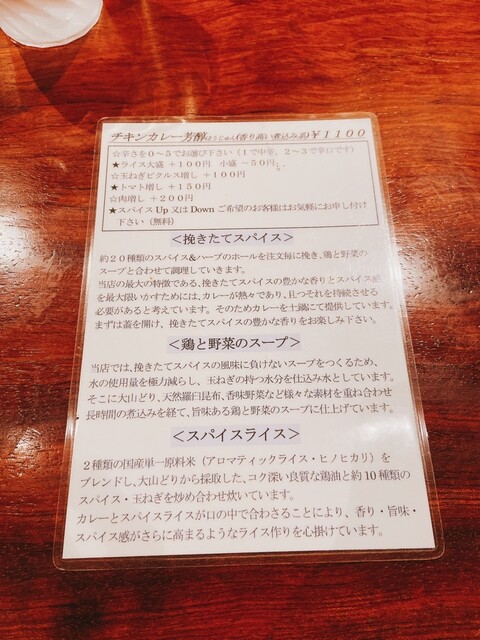 チキンカレー芳醇ほうじゅん(香り高い煮込み系)￥１１００
☆辛さを０～５でお選び下さい（１で中辛、２～３で辛口です）
★ライス大盛 ＋１００円　小盛 －５０円
☆玉ねぎピクルス増し ＋１００円
★トマト増し ＋１５０円
☆肉増し ＋２００円
★スパイス Up 又は Down ご希望のお客様はお気軽にお申し付け
下さい（無料）
＜挽きたてスパイス＞
約２０種類のスパイス&ハーブのホールを注文毎に挽き、鶏と野菜の
スープと合わせて調理していきます。
当店の最大の特徴である、挽きたてスパイスの豊かな香りとスパイス感
を最大限いかすためには、カレーが熱々であり、且つそれを持続させる
必要があると考えています。そのためカレーを土鍋にて提供しています。
まずは蓋を開け、挽きたてスパイスの豊かな香りをお楽しみ下さい。
＜鶏と野菜のスープ＞
当店では、挽きたてスパイスの風味に負けないスープをつくるため、
水の使用量を極力減らし、玉ねぎの持つ水分を仕込み水としています。
そこに大山どり、天然羅臼昆布、香味野菜など様々な素材を重ね合わせ
長時間の煮込みを経て、旨味ある鶏と野菜のスープに仕上げています。
＜スパイスライス＞
２種類の国産単一原料米（アロマティックライス・ヒノヒカリ）を
ブレンドし、大山どりから採取した、コク深い良質な鶏油と約 10 種類の
スパイス・玉ねぎを炒め合わせ炊いています。
カレーとスパイスライスが口の中で合わさることにより、香り・旨味・
スパイス感がさらに高まるようなライス作りを心掛けています。